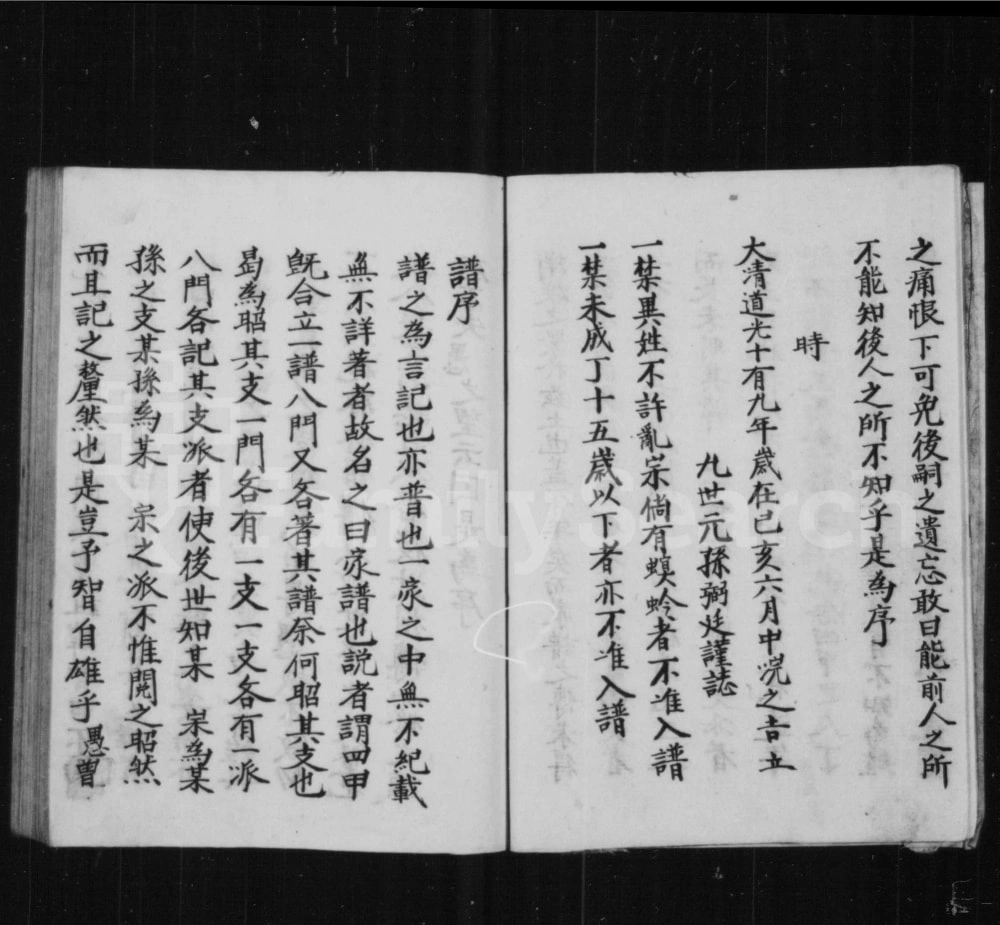 之痛恨下可免後嗣之遺忘敢曰能前人之所
不能知後人之所不知乎是為序
時
大清道光十有九年歲在己亥六月中浣之吉立
九世元孫弼廷謹誌
一禁異姓不許亂宗倘有螟蛉者不准入譜
一禁未成丁十五歲以下者亦不准入譜
譜序
譜之為言記也亦普也一家之中無不紀載
無不詳著者故名之曰家譜也説者謂四甲
旣合立一譜八門又各著其譜奈何昭其支也
曷為昭其支一門各有一支一支各有一派
八門各記其支派者使後世知某 宗為某
孫之支某孫為某 宗之派不惟閱之昭然
而且記之釐然也是豈予智自雄乎愚曽
FamilySearch